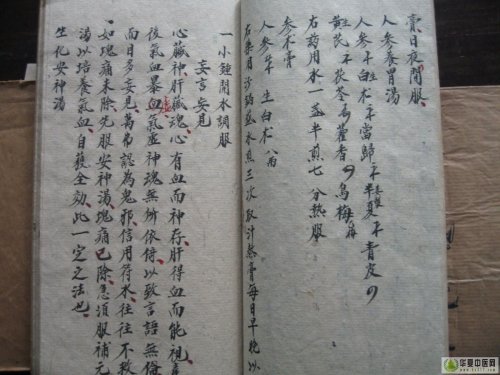 膏日夜間服
人參養胃湯
人參 生白术 當歸 半夏 青皮
黃芪 茯苓 藿香 烏梅
右药用水一盞半煎七分熱服
參术膏
人參 生白术
右藥用砂鍋 水煎三次取汁熬膏每日早晚以
一小鍾開水調服
妄言妄見
心臟神肝臟魂心有血而神存肝得血而能視產
後氣血暴血氣虛神魂無所依倚以致言語無倫
而目多妄見萬弗認為鬼邪信用符水往往不救
如塊痛未除先服安神湯塊痛已除急須服補元
湯以培養氣血自獲全効此一定之法也
生化安神湯
华夏中医网